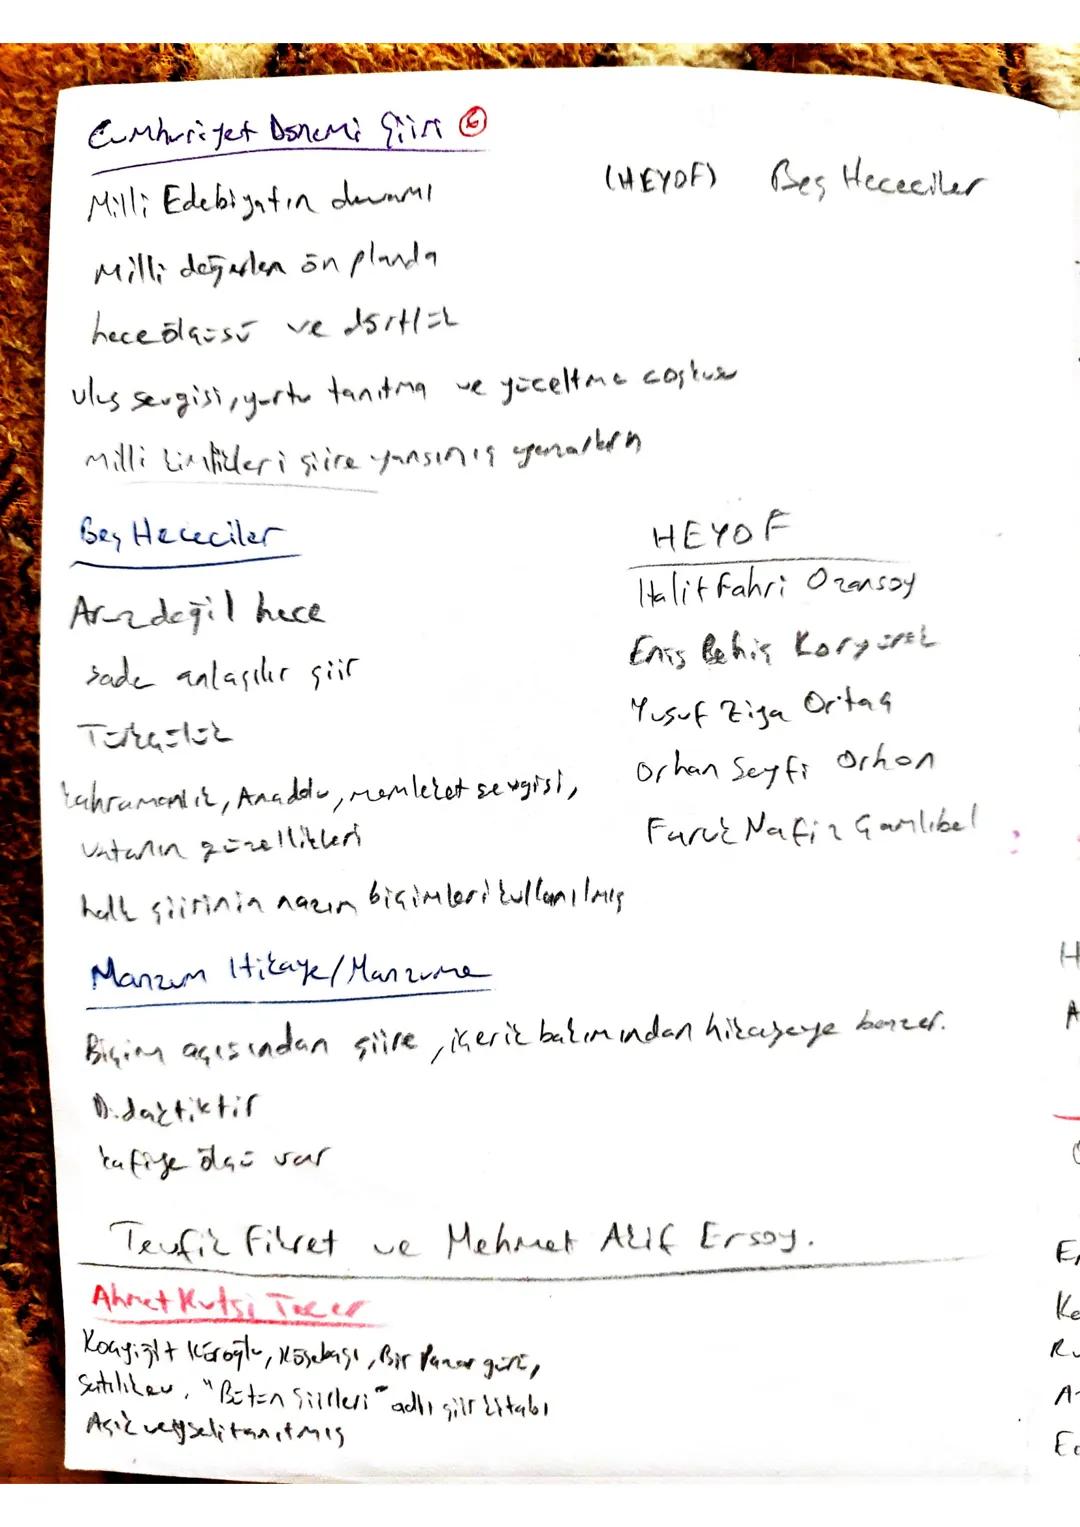 Cumhuriyet Dönemi Şiiri 6
(HEYOF) Beş Hececiler
Milli Edebiyatın devamı
Milli değerler ön planda
hece ölçüsü ve dörtlük
ulus sevgisi, yurtu tanıtma ve yüceltme coşkusu
Milli kimlikleri şiire yansımış
Beş Hececiler
Aruz değil hece
sade anlaşılır şiir
Türkçülük
kahramanlık, Anadolu, memleket sevgisi,
vatanın güzellikleri
halk şiirinin nazım biçimleri kullanılmış
HEYOF
Halit Fahri Ozansoy
Enis Behiç Koryürek
Yusuf Ziya Ortaç
Orhan Seyfi Orhon
Faruk Nafiz Çamlıbel
Manzum Hikaye/Manzume
Biçim açısından şiire, içerik bakımından hikayeye benzer.
Didaktiktir
kafiye ölçü var
Tevfik Fikret ve Mehmet Akif Ersoy.
Ahmet Kutsi Tecer
Koçyiğit Köroğlu, Köşebaşı, Bir Pazar günü,
Satılık ev, "Bütün Şiirleri" adlı şiir kitabı
Aşık veyseli tanıtmış